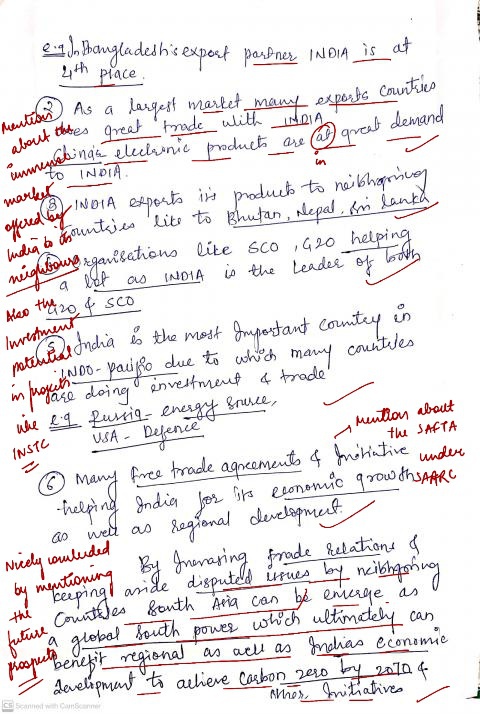 e.g In Bangladesh's export partner INDIA is at
4th place.
② As a largest market many exports countries
does great trade with INDIA
China's electronic products are at great demand
in
to INDIA.
Mention
about the
immense
market
offered by
India to its
neighbours
Also the
Investment
potential
in projects
like
INSTC
③ INDIA exports its products to neibhgoring
Countries like to Bhutan, Nepal, Sri lanka
Organisations like SCO, G20 helping
a lot as INDIA is the leader of both
G20 & SCO
⑤ India is the most Important country in
INDO-pacific due to which many countries
are doing investment & trade
e.g Russia - energy source,
USA - Defence
Mention about
the SAFTA
under
SAARC
⑥ Many free trade agreements & Initiative
helping India for its economic growth
as well as regional development.
Nicely concluded
by mentioning
the
future
prospects
By Increasing trade relations &
keeping aside disputed issues by neibhgoring
Countries South Asia can be emerge as
a global south power which ultimately can
benefit regional as well as Indias economic
development to achieve carbon zero by 2070 &
other Initiatives
CS Scanned with CamScanner